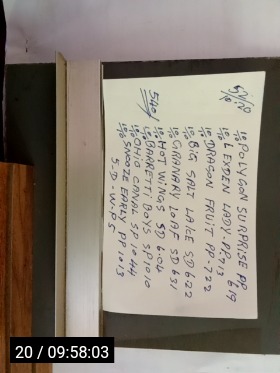 GN/R
10/10 POLYGON SURPRISE PP 619
10/10 LEYDEN LADY PP. 713
10/10 DRAGON FRUIT PP. 722
10/10 BIG SALT LAKE SD 622
10/10 GRANARY LOAF SD 631
10/10 HOT WINGS SD 6.04
10/10 BARRETTI BOYS SP 1010
10/10 OHIO CANAL SP 10.44
10/10 SNOOZE EARLY PP 10.13
5-D-W.P.S
20 / 09:58:03